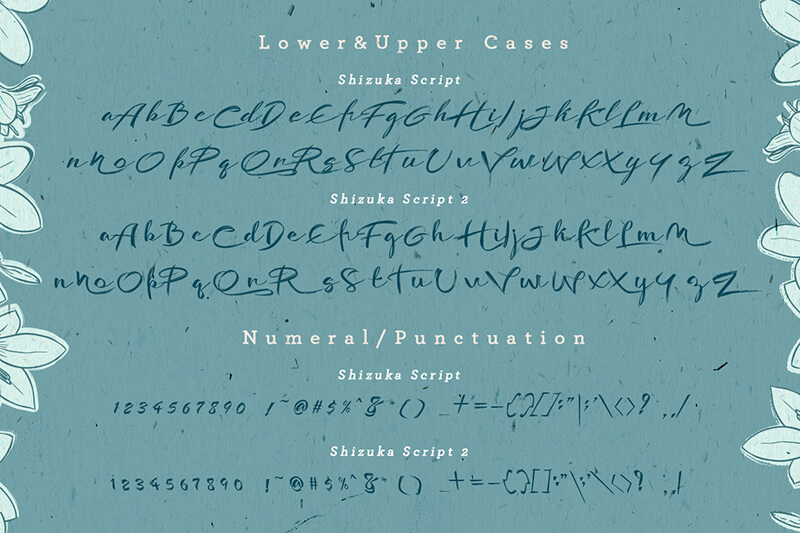 Lower&Upper Cases
Shizuka Script
aAbBcCdDeEfFgGhHiIjJkKlLmM
nNoOpPqQrRsStTuUvVwWxXyYzZ
Shizuka Script 2
aAbBcCdDeEfFgGhHiIjJkKlLmM
nNoOpPqQrRsStTuUvVwWxXyYzZ
Numeral/Punctuation
Shizuka Script
1234567890 !~@#$%^&*() _+=-{}[]:"|;'\<>? ,./
Shizuka Script 2
1234567890 !~@#$%^&*() _+=-{}[]:"|;'\<>? ,./